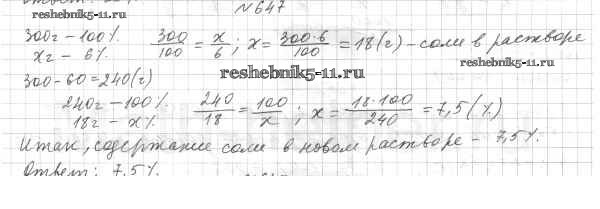 №647
reshebnik5-11.ru
300г – 100%   300/100 = x/6; x = 300·6/100 = 18(г) – соли в растворе
xг – 6%
300-60=240(г)
reshebnik5-11.ru   reshebnik5-11.ru
240г – 100%   240/18 = 100/x; x = 18·100/240 = 7,5(%)
18г – x%
Итак, содержание соли в новом растворе – 7,5%.
Ответ: 7,5%